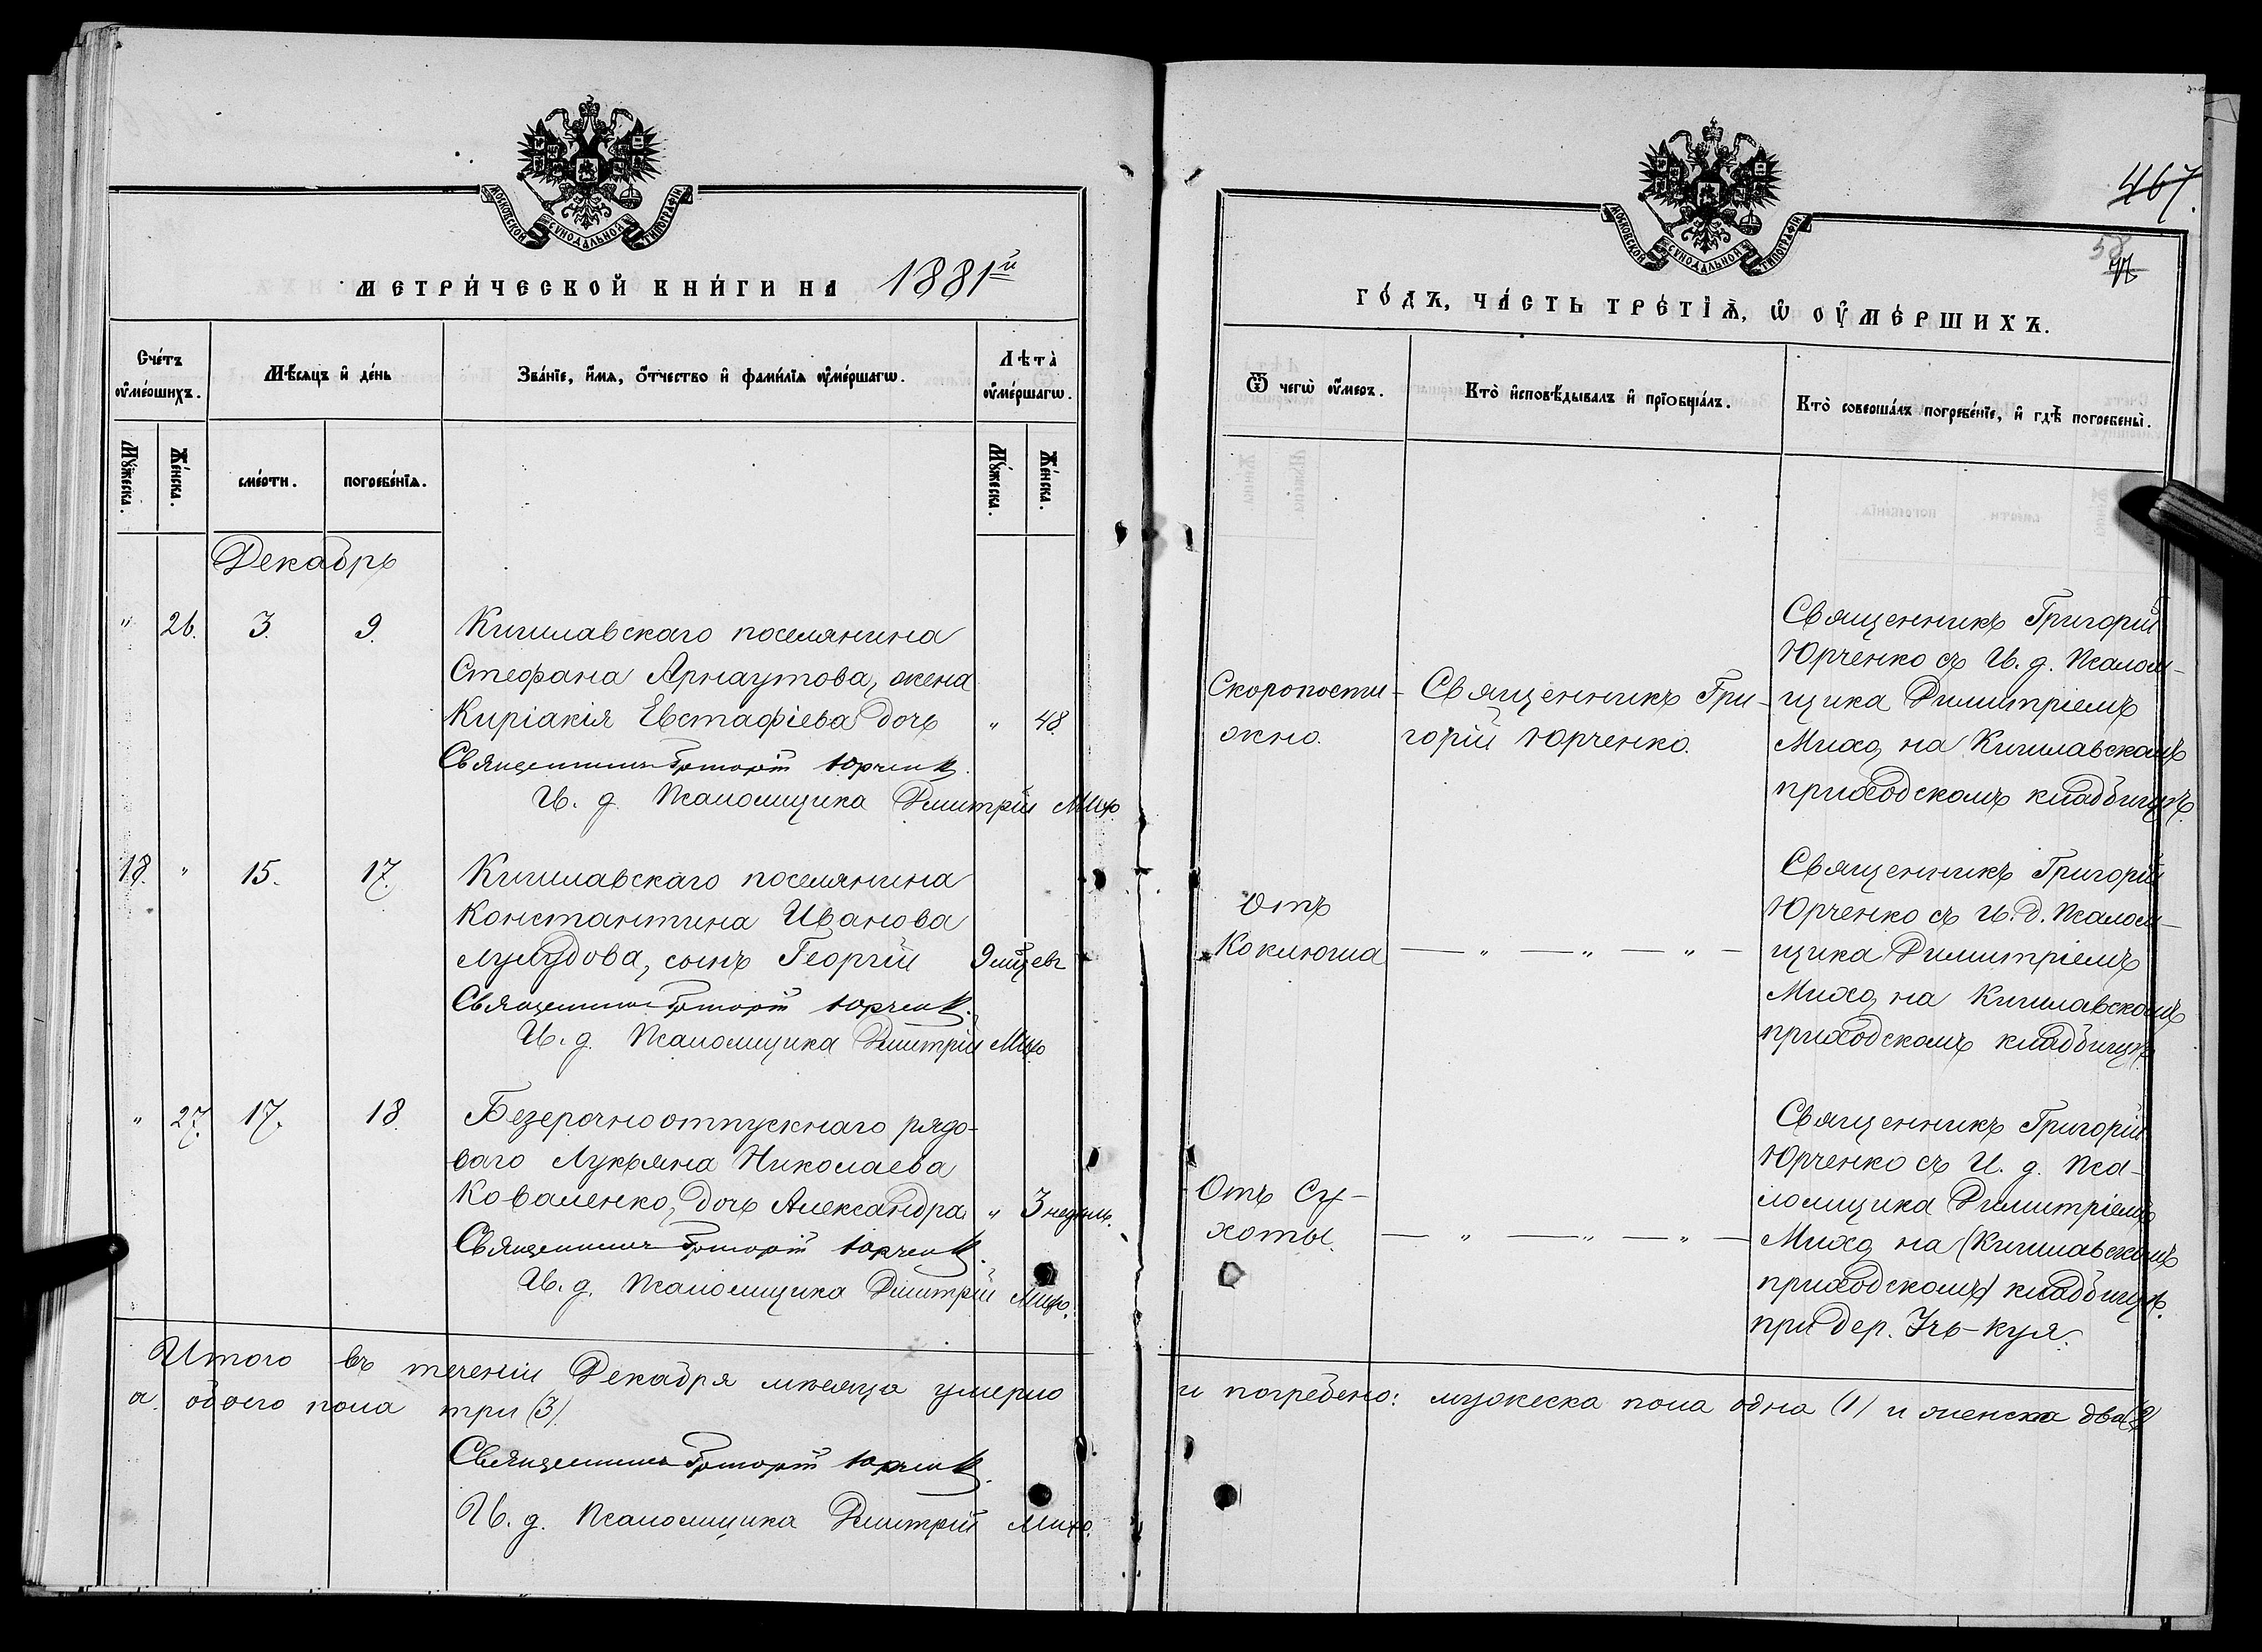 МОСКОВСКОЙ СѴНОДАЛЬНОЙ ТИПОГРАФІИ
МЕТРИ́ЧЕСКОЙ КНИ́ГИ НА 1881й
Сче́тъ оу҆ме́ршихъ.
Мѣ́сяцъ и҆ де́нь
Зва́нїе, и҆́мѧ, ѻ҆́тчество и҆ фами́лїѧ оу҆ме́ршагѡ.
Лѣта̀ оу҆ме́ршагѡ.
Мꙋ́жеска.
Же́нска.
сме́рти.
погребе́нїѧ.
Мꙋ́жеска.
Же́нска.
Декабрь
" 26. 3. 9. Кишлавскаго поселянина
Стефана Арнаутова, жена
Киріакія Евстафіева дочь " 48.
Священникъ Григорій Юрченко.
И. д. Псаломщика Дмитрій Михо
18. " 15. 17. Кишлавскаго поселянина
Константина Иванова
сынъ Георгій 9 мѣцевъ
Священникъ Григорій Юрченко.
И. д. Псаломщика Дмитрій Михо
" 27. 17. 18. Безсрочноотпускнаго рядо-
ваго Лукьяна Николаева
Коваленко, дочь Александра " 3 недѣль.
Священникъ Григорій Юрченко.
И. д. Псаломщика Дмитрій Михо.
Итого въ теченіи Декабря мѣсяца умерло
а. обоего пола три (3).
Священникъ Григорій Юрченко.
И. д. Псаломщика Дмитрій Михо.
467.
58
МОСКОВСКОЙ СѴНОДАЛЬНОЙ ТИПОГРАФІИ
ГО́ДЪ, ЧА́СТЬ ТРЕ́ТІѦ, Ѡ҆ ОУ҆МЕ́РШИХЪ.
Ѿ чегѡ̀ оу҆́меръ.
Кто̀ и҆сповѣ́дывалъ и҆ прїобща́лъ.
Кто̀ соверша́лъ погребе́нїе, и҆ гдѣ̀ погребены̀.
Скоропости-
жно.
Священникъ Гри-
горій Юрченко.
Священникъ Григорій
Юрченко съ И. д. Псалом-
щика Димитріемъ
Михо, на Кишлавскомъ
приходскомъ кладбищѣ.
Отъ
Коклюша
— " — " — " —
Священникъ Григорій
Юрченко съ И. д. Псалом-
щика Димитріемъ
Михо, на Кишлавскомъ
приходскомъ кладбищѣ.
Отъ Су-
хоты.
— " — " — " —
Священникъ Григорій
Юрченко съ И. д. Пса-
ломщика Димитріемъ
Михо, на (Кишлавскомъ
приходскомъ) кладбищѣ.
при дер. Учь-куя.
и погребено: мужеска пола одна (1) и женска два (2)